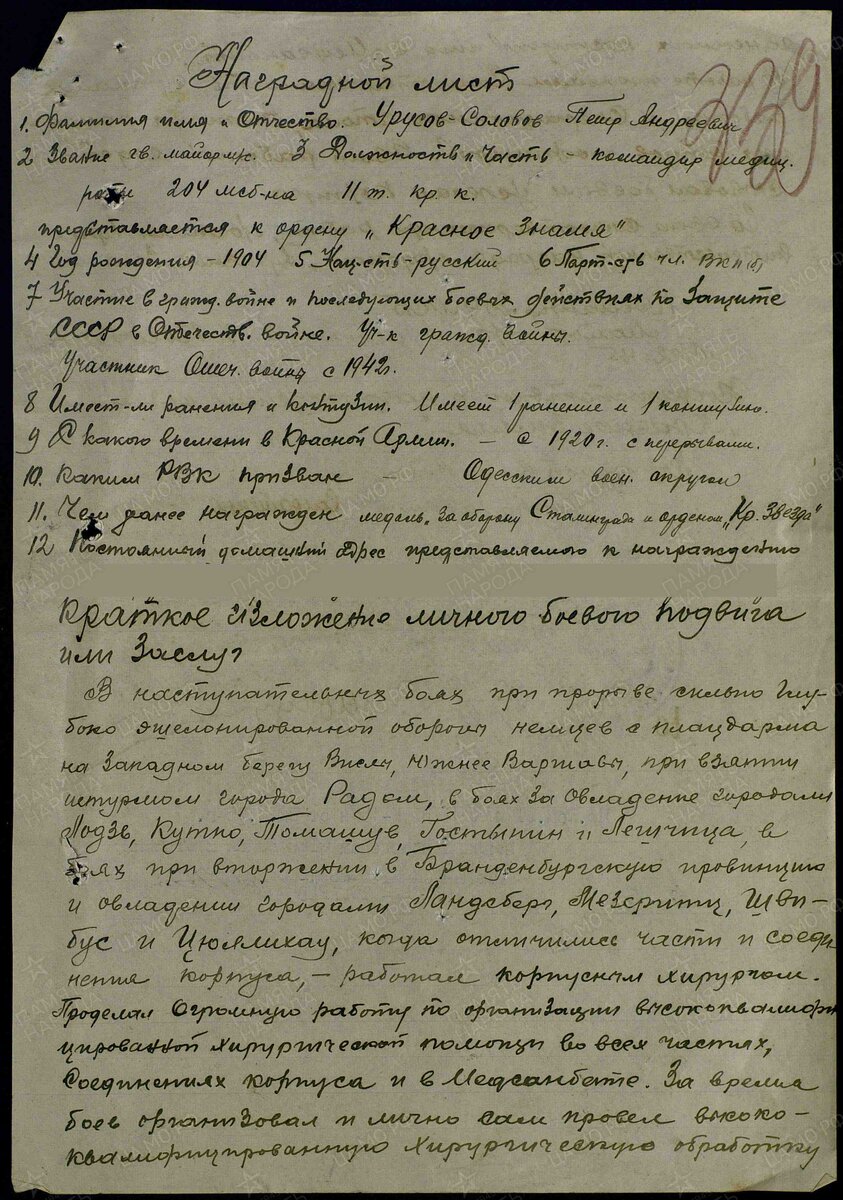 339
Наградной лист
1. Фамилия имя и Отчество. Урусов-Соловов Петр Андреевич
2 Звание гв. майор м/с. 3 Должность и часть - командир медиц.
роты 204 мсб-на 11 т. кр. к.
представляется к ордену „Красное Знамя"
4 Год рождения - 1904 5 Нац-сть-русский 6 Парт-сть чл. ВКП(б)
7 Участие в гражд. войне и последующих боевых действиях по Защите
СССР в Отечеств. войне. Уч-к гражд. войны.
Участник Отеч. войны с 1942г.
8 Имеет-ли ранения и контузии. Имеет 1 ранение и 1 контузию.
9 С какого времени в Красной Армии. - с 1920 г. с перерывами.
10. Каким РВК призван - Одесским воен. округом
11. Чем ранее награжден медаль „За оборону Сталинграда и орденом „Кр. Звезда"
12 Постоянный домашний адрес представляемого к награждению
Краткое изложение личного боевого подвига
или Заслуг
В наступательных боях при прорыве сильно глу-
боко эшелонированной обороны немцев с плацдарма
на Западном берегу Вислы, Южнее Варшавы, при взятии
штурмом города Радом, в боях за Овладение городами
Лодзь, Кутно, Томашув, Гостынин и Ленчица, в
боях при вторжении в Бранденбургскую провинцию
и овладении городами Ландсберг, Мезеритц, Шви-
бус и Цюллихау, когда отличились части и соеди-
нения корпуса, - работал корпусным хирургом.
Проделал Огромную работу по организации высококвалифи-
цированной хирургической помощи во всех частях,
Соединениях корпуса и в Медсанбате. За время
боев организовал и лично сам провел высоко-
квалифицированную хирургическую обработку